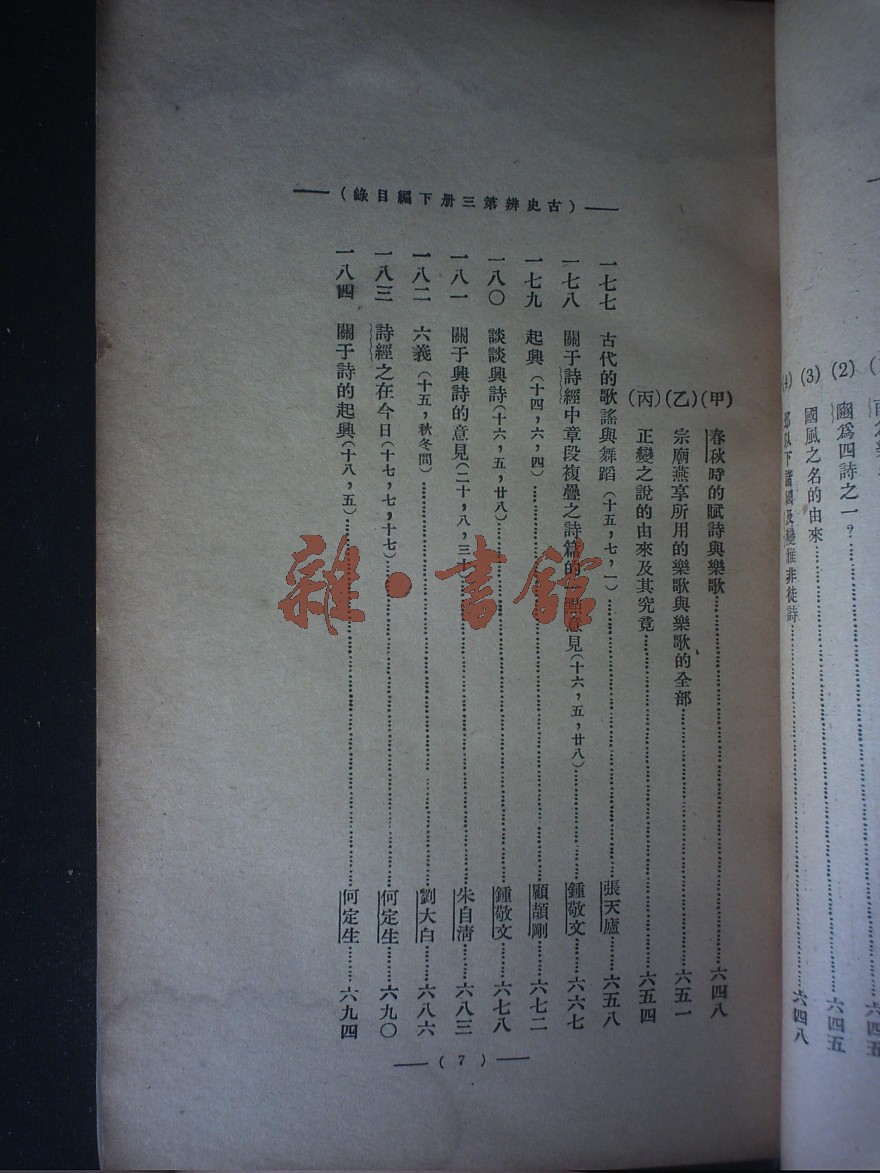 豳為四詩之一?……六四五
(3) 國風之名的由來……六四五
以下諸國及變雅非徒詩……六四八
(古史辨第三册下編目錄)
(甲) 春秋時的賦詩與樂歌……六四八
(乙) 宗廟燕享所用的樂歌與樂歌的全部……六五一
(丙) 正變之說的由來及其究竟……六五四
一七七 古代的歌謠與舞蹈(十五,七,一)……張天廬……六五八
一七八 關于詩經中章段複疊之詩篇的一點意見(十六,五,廿八)……鍾敬文……六六七
一七九 起興(十四,六,四)……顧頡剛……六七二
一八〇 談談興詩(十六,五,廿八)……鍾敬文……六七八
一八一 關于興詩的意見(二十,八,三十)……朱自清……六八三
一八二 六義(十五,秋冬間)……劉大白……六八六
一八三 詩經之在今日(十七,七,十七)……何定生……六九〇
一八四 關于詩的起興(十八,五)……何定生……六九四
(7)
雜·書館